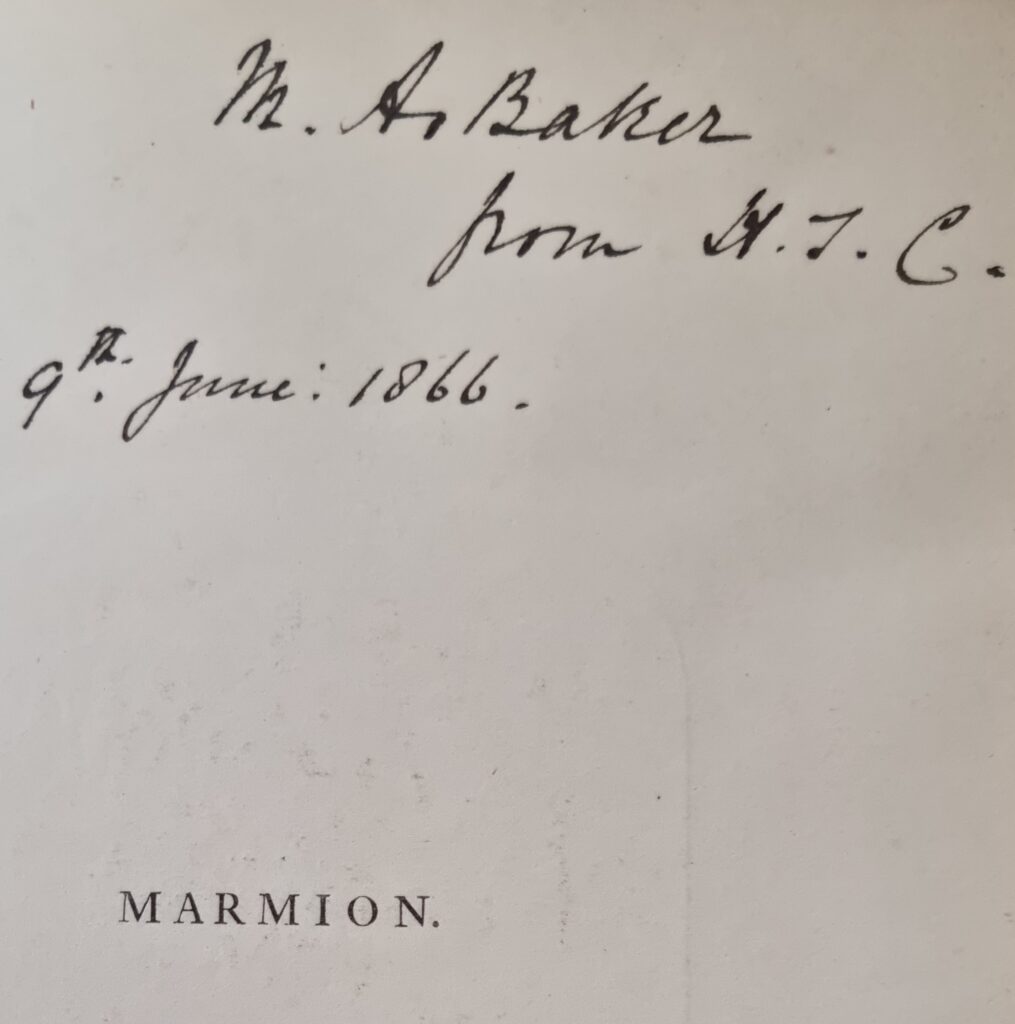 M. A. Baker
from H. T. C.
9th. June: 1866.
MARMION.